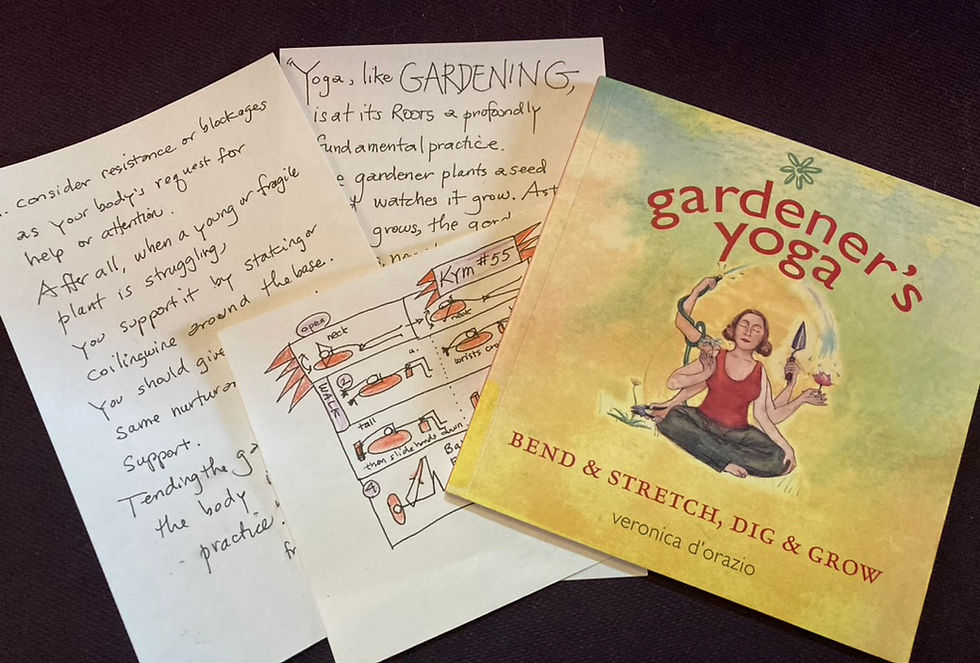 . consider resistance or blockages
as your body's request for
help or attention.
After all, when a young or fragile
plant is struggling,
you support it by staking or
coiling wire around the base.
You should give
same
support.
Tending the
the body
practice
"Yoga, like GARDENING,
is at its ROOTS a profoundly
fundamental practice.
gardener plants a seed
watches it grow. As t
grows, the
Kym #55
open
neck
neck
2
WALK
wrists
tall
then slide hands down
4
gardener's
yoga
BEND & STRETCH, DIG & GROW
veronica d'orazio